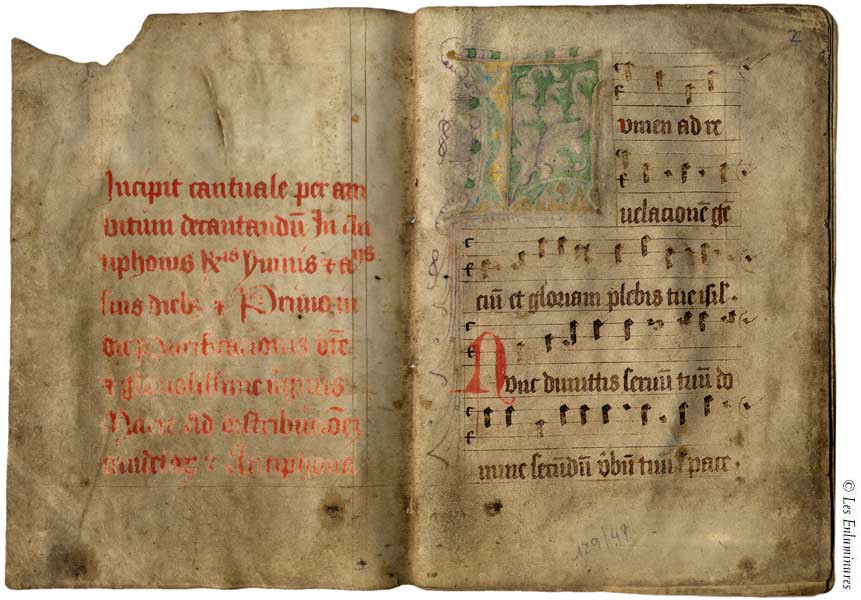 Incipit cantuale per am
bitum decantandū In An
tiphonis R̄is Ymnis & aliis
suis dieb⁊ & Primo in
die Purificationis bt̄e
& gloriosissime ūginis
Marie ad distribucōeꝫ
candelaꝝ & Antiphona
2
Lumen ad re
uelacionē ge
ciū et gloriam plebis tue isrl·
Nunc dimittis seruū tuū do
mine secūdū v̄bū tuū ī pace·
129/48
© Les Enluminures